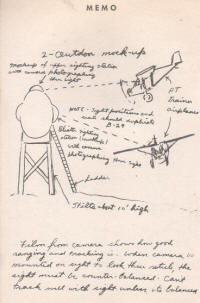 MEMO
2-Centdon mock-up
mockup of upper sighting station
with camera photographing
thru sight
AT
Trainer
airplanes
NOTE - Sight positions and
seat should duplicate
B-29
Blister sighting
station (mockup)
with camera
photographing thru sight
Ladder
Stilts about 10' high
Film from camera shows how good
ranging and tracking is. When camera is
mounted on sight to look thru retich, the
sight must be counter-balanced. Can't
track well with sight unless its balanced